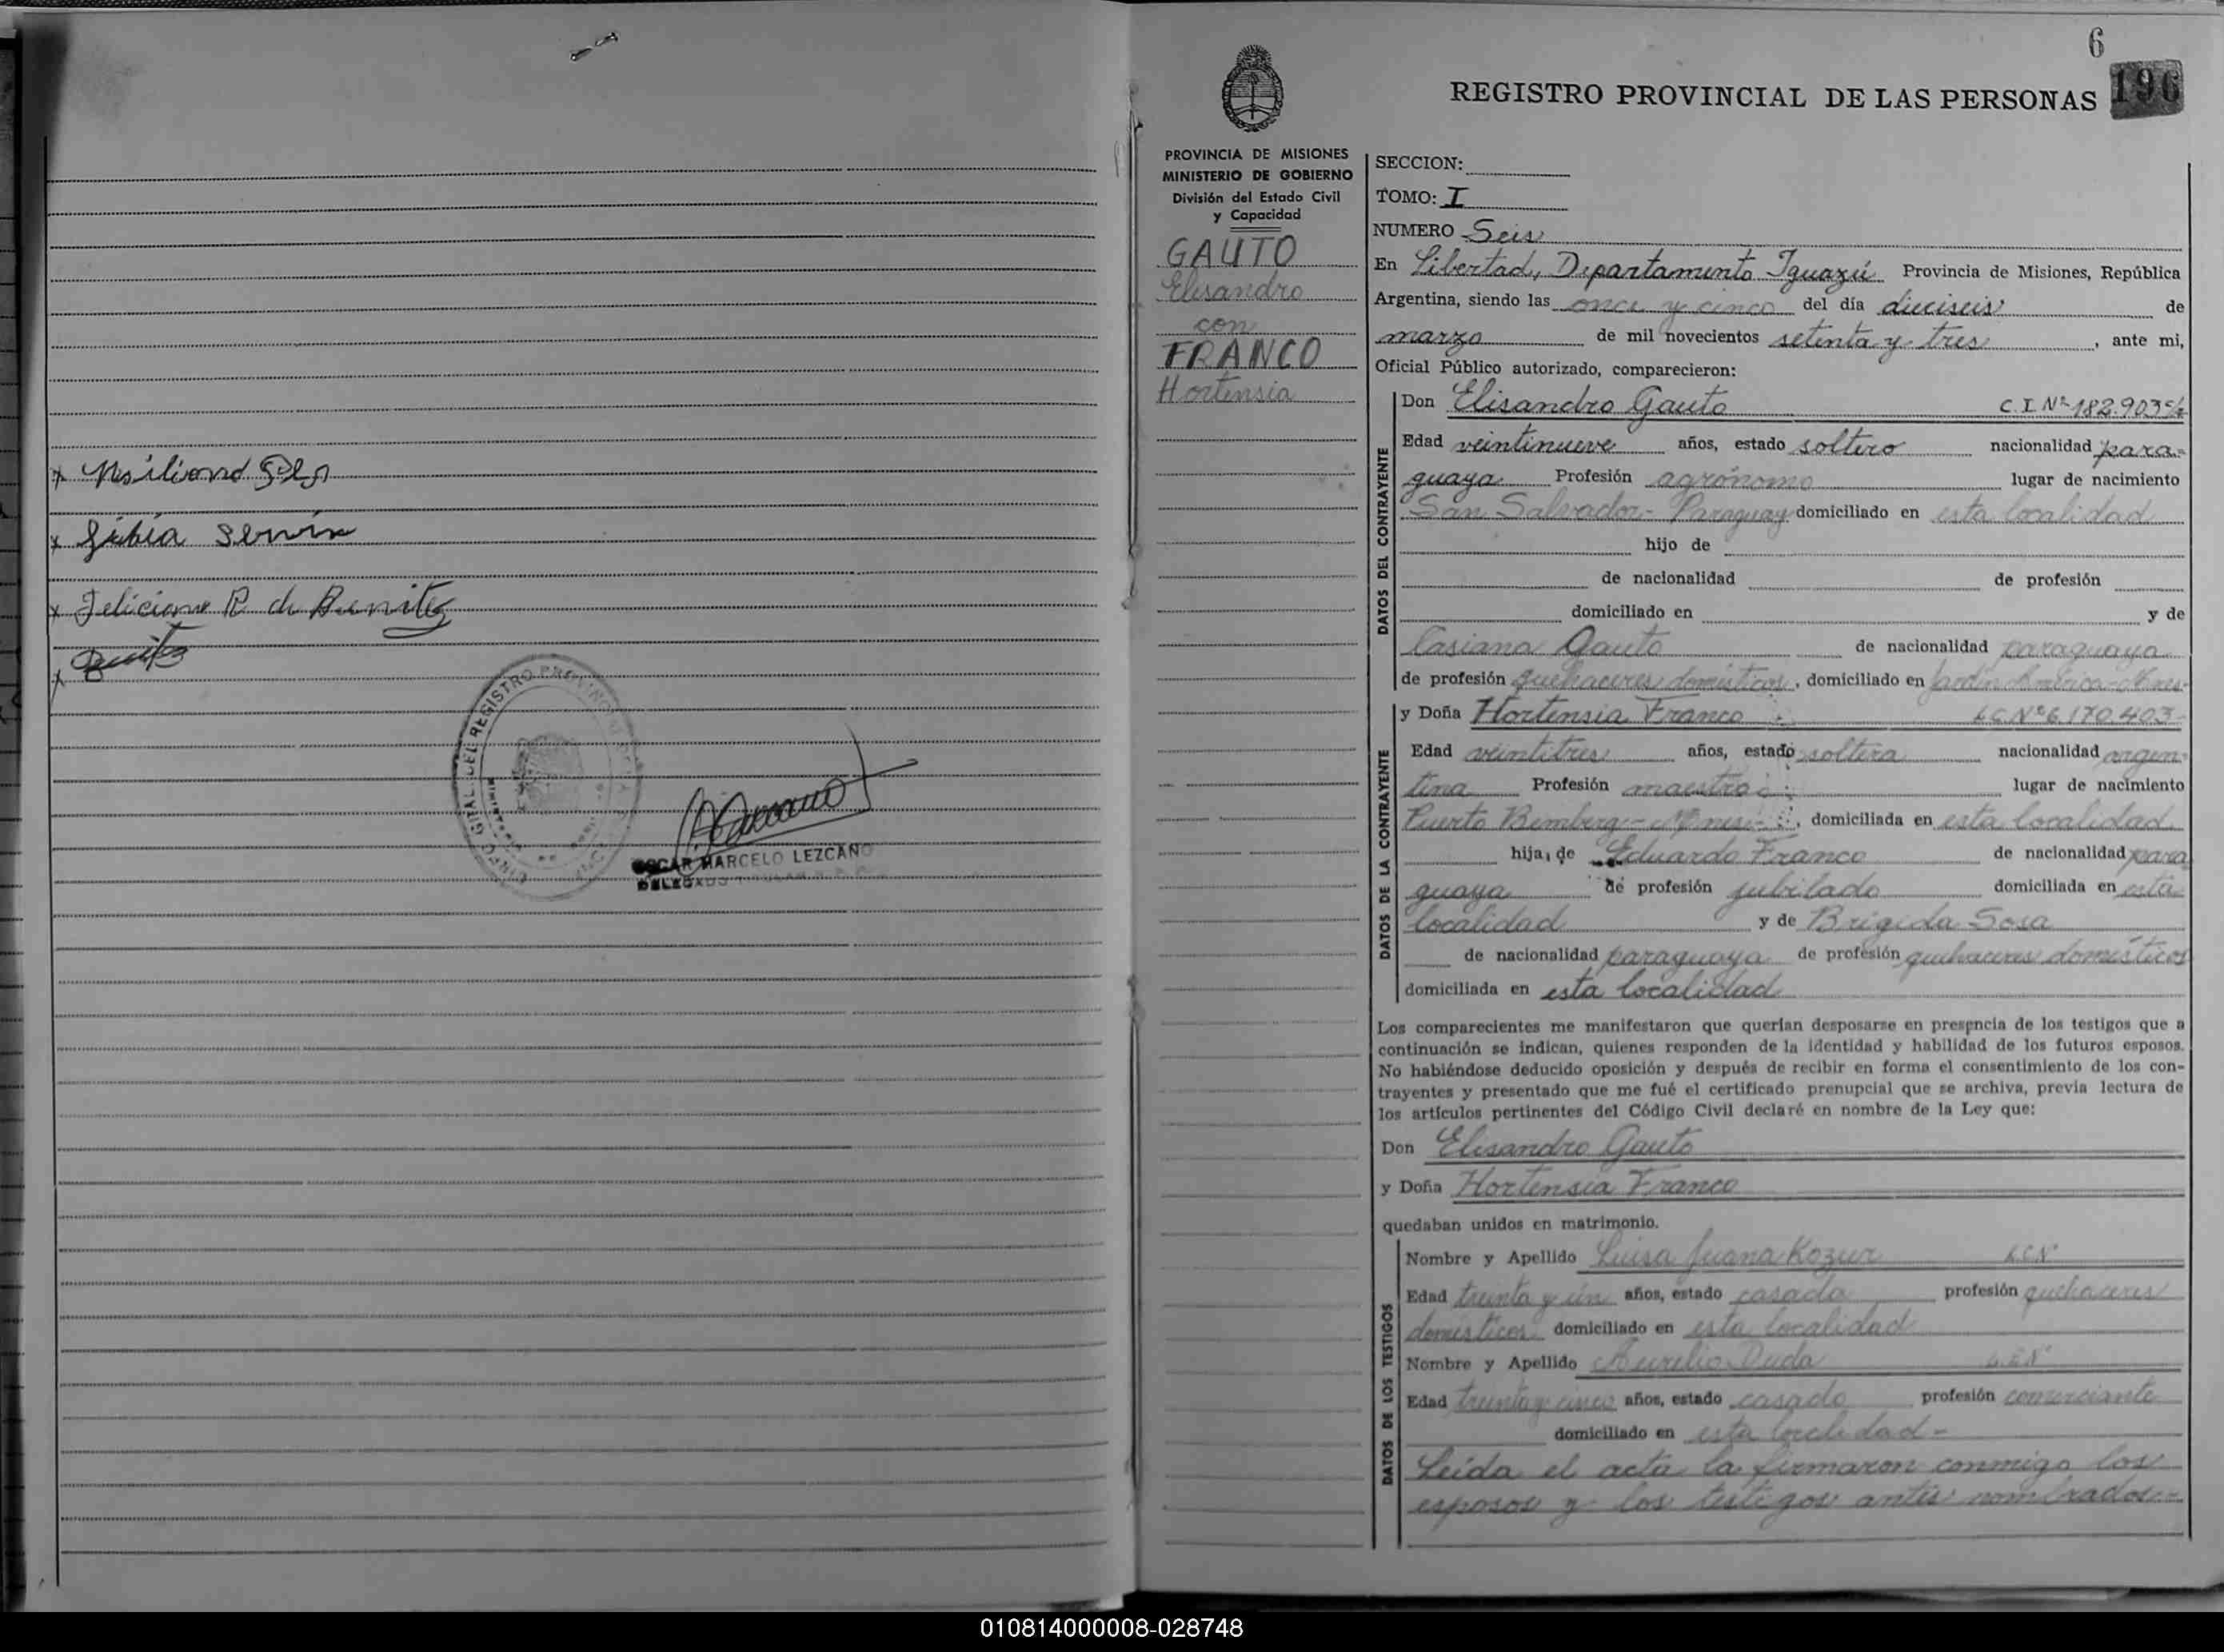 x Gibia Servin
x Feliciana R de Benitez
x Benitez
OFIC. GRAL. DEL REGISTRO PROVINCIAL
OSCAR MARCELO LEZCANO
DELEGADO TITULAR
6
196
REGISTRO PROVINCIAL DE LAS PERSONAS
PROVINCIA DE MISIONES
MINISTERIO DE GOBIERNO
División del Estado Civil
y Capacidad
GAUTO
Elisandro
con
FRANCO
Hortensia
SECCION:
TOMO: I
NUMERO Seis
En Libertad, Departamento Iguazú Provincia de Misiones, República
Argentina, siendo las once y cinco del día dieciseis de
marzo de mil novecientos setenta y tres, ante mi,
Oficial Público autorizado, comparecieron:
DATOS DEL CONTRAYENTE
Don Elisandro Gauto C.I. Nº 182.903
Edad veintinueve años, estado soltero nacionalidad para-
guaya Profesión agrónomo lugar de nacimiento
San Salvador - Paraguay domiciliado en esta localidad
hijo de
de nacionalidad de profesión
domiciliado en y de
Casiana Gauto de nacionalidad paraguaya
de profesión quehaceres domésticos, domiciliado en Jardín América - Mnes-
DATOS DE LA CONTRAYENTE
y Doña Hortensia Franco L.C. Nº 6.170.403-
Edad veintitres años, estado soltera nacionalidad argen-
tina Profesión maestra lugar de nacimiento
Puerto Bemberg - Mnes-, domiciliada en esta localidad
hija, de Eduardo Franco de nacionalidad para
guaya de profesión jubilado domiciliada en esta
localidad y de Brigida Sosa
de nacionalidad paraguaya de profesión quehaceres domésticos
domiciliada en esta localidad
Los comparecientes me manifestaron que querían desposarse en presencia de los testigos que a
continuación se indican, quienes responden de la identidad y habilidad de los futuros esposos.
No habiéndose deducido oposición y después de recibir en forma el consentimiento de los con-
trayentes y presentado que me fué el certificado prenupcial que se archiva, previa lectura de
los artículos pertinentes del Código Civil declaré en nombre de la Ley que:
Don Elisandro Gauto
y Doña Hortensia Franco
quedaban unidos en matrimonio.
DATOS DE LOS TESTIGOS
Nombre y Apellido Luisa Juana Kozur L.C.Nº
Edad treinta y un años, estado casada profesión quehaceres
domésticos domiciliado en esta localidad
Nombre y Apellido Aurelio Duda L.E.Nº
Edad treinta y cinco años, estado casado profesión comerciante
domiciliado en esta localidad -
Leída el acta la firmaron conmigo los
esposos y los testigos antes nombrados.-
010814000008-028748